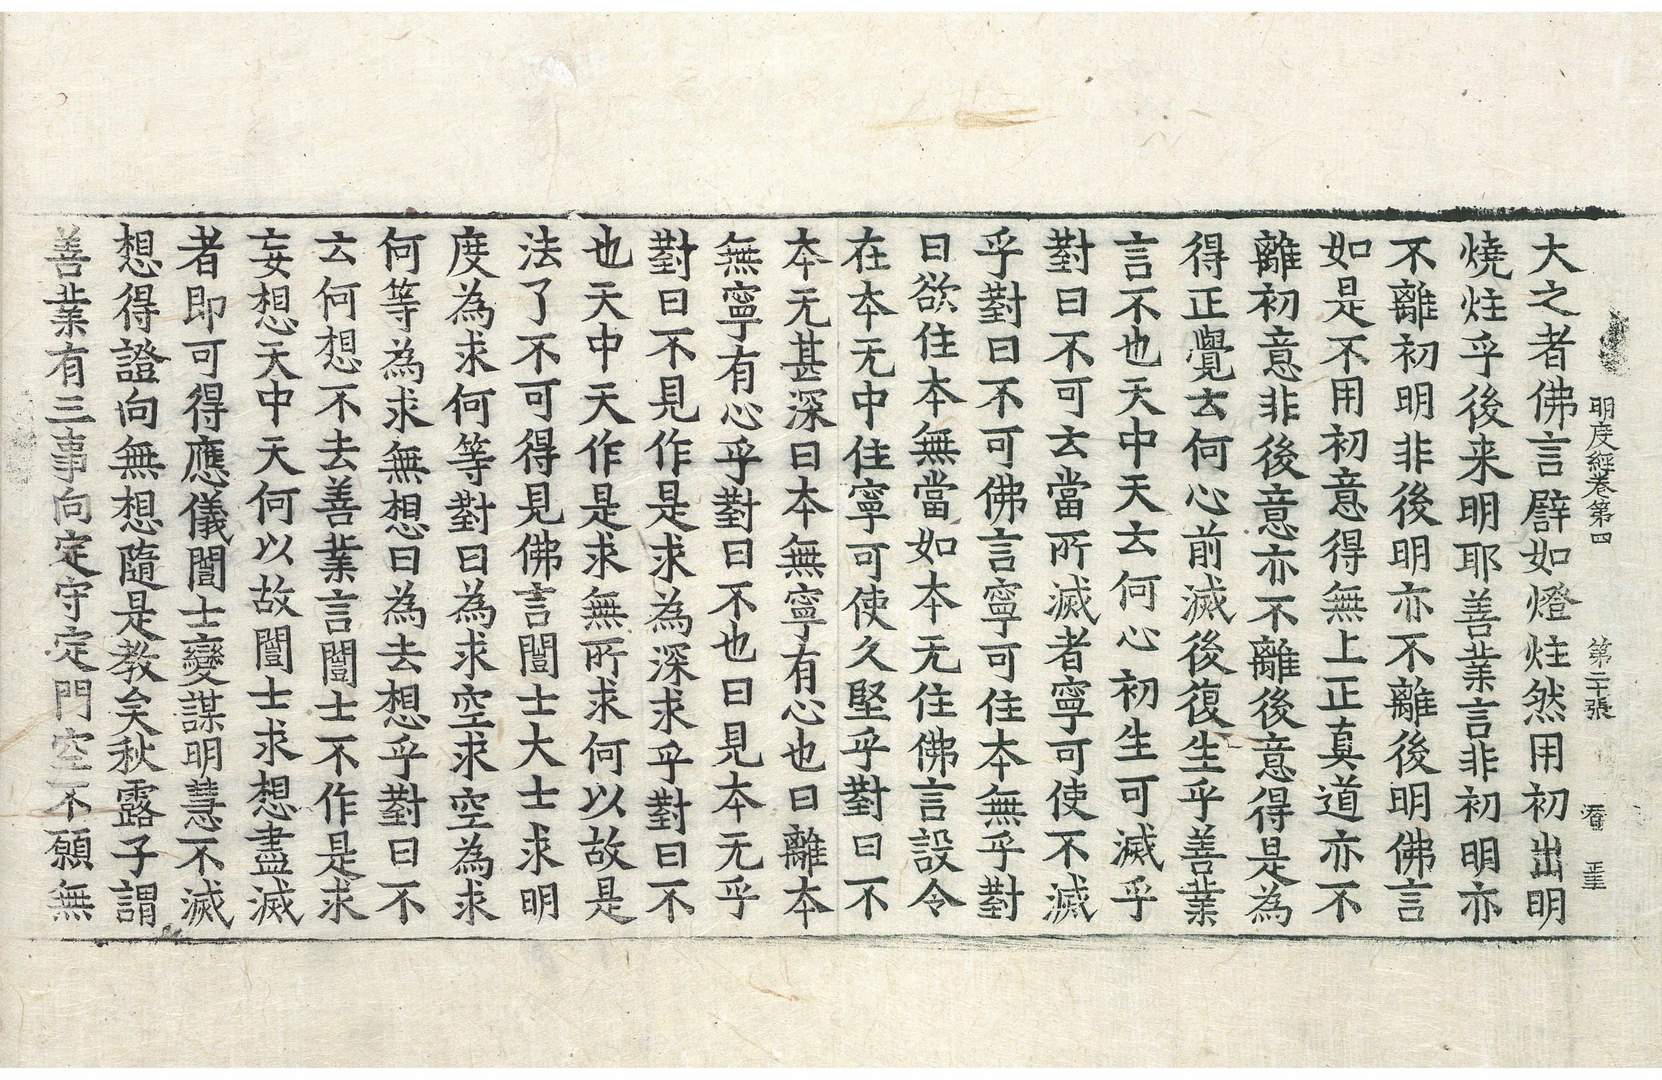 明度經卷第四 第二十張
大之者佛言譬如燈炷然用初出明
燒炷乎後来明耶善業言非初明亦
不離初明非後明亦不離後明佛言
如是不用初意得無上正真道亦不
離初意非後意亦不離後意得是為
得正覺云何心前滅後復生乎善業
言不也天中天云何心初生可滅乎
對曰不可云當所滅者寧可使不滅
乎對曰不可佛言寧可住本無乎對
曰欲住本無當如本无住佛言設令
在本无中住寧可使久堅乎對曰不
本无甚深曰本無寧有心也曰離本
無寧有心乎對曰不也曰見本无乎
對曰不見作是求為深求乎對曰不
也天中天作是求無所求何以故是
法了不可得見佛言闓士大士求明
度為求何等對曰為求空求空為求
何等為求無想曰為去想乎對曰不
云何想不去善業言闓士不作是求
妄想天中天何以故闓士求想盡滅
者即可得應儀闓士變謀明慧不滅
想得證向無想隨是教矣秋露子謂
善業有三事向定守定門空不願無